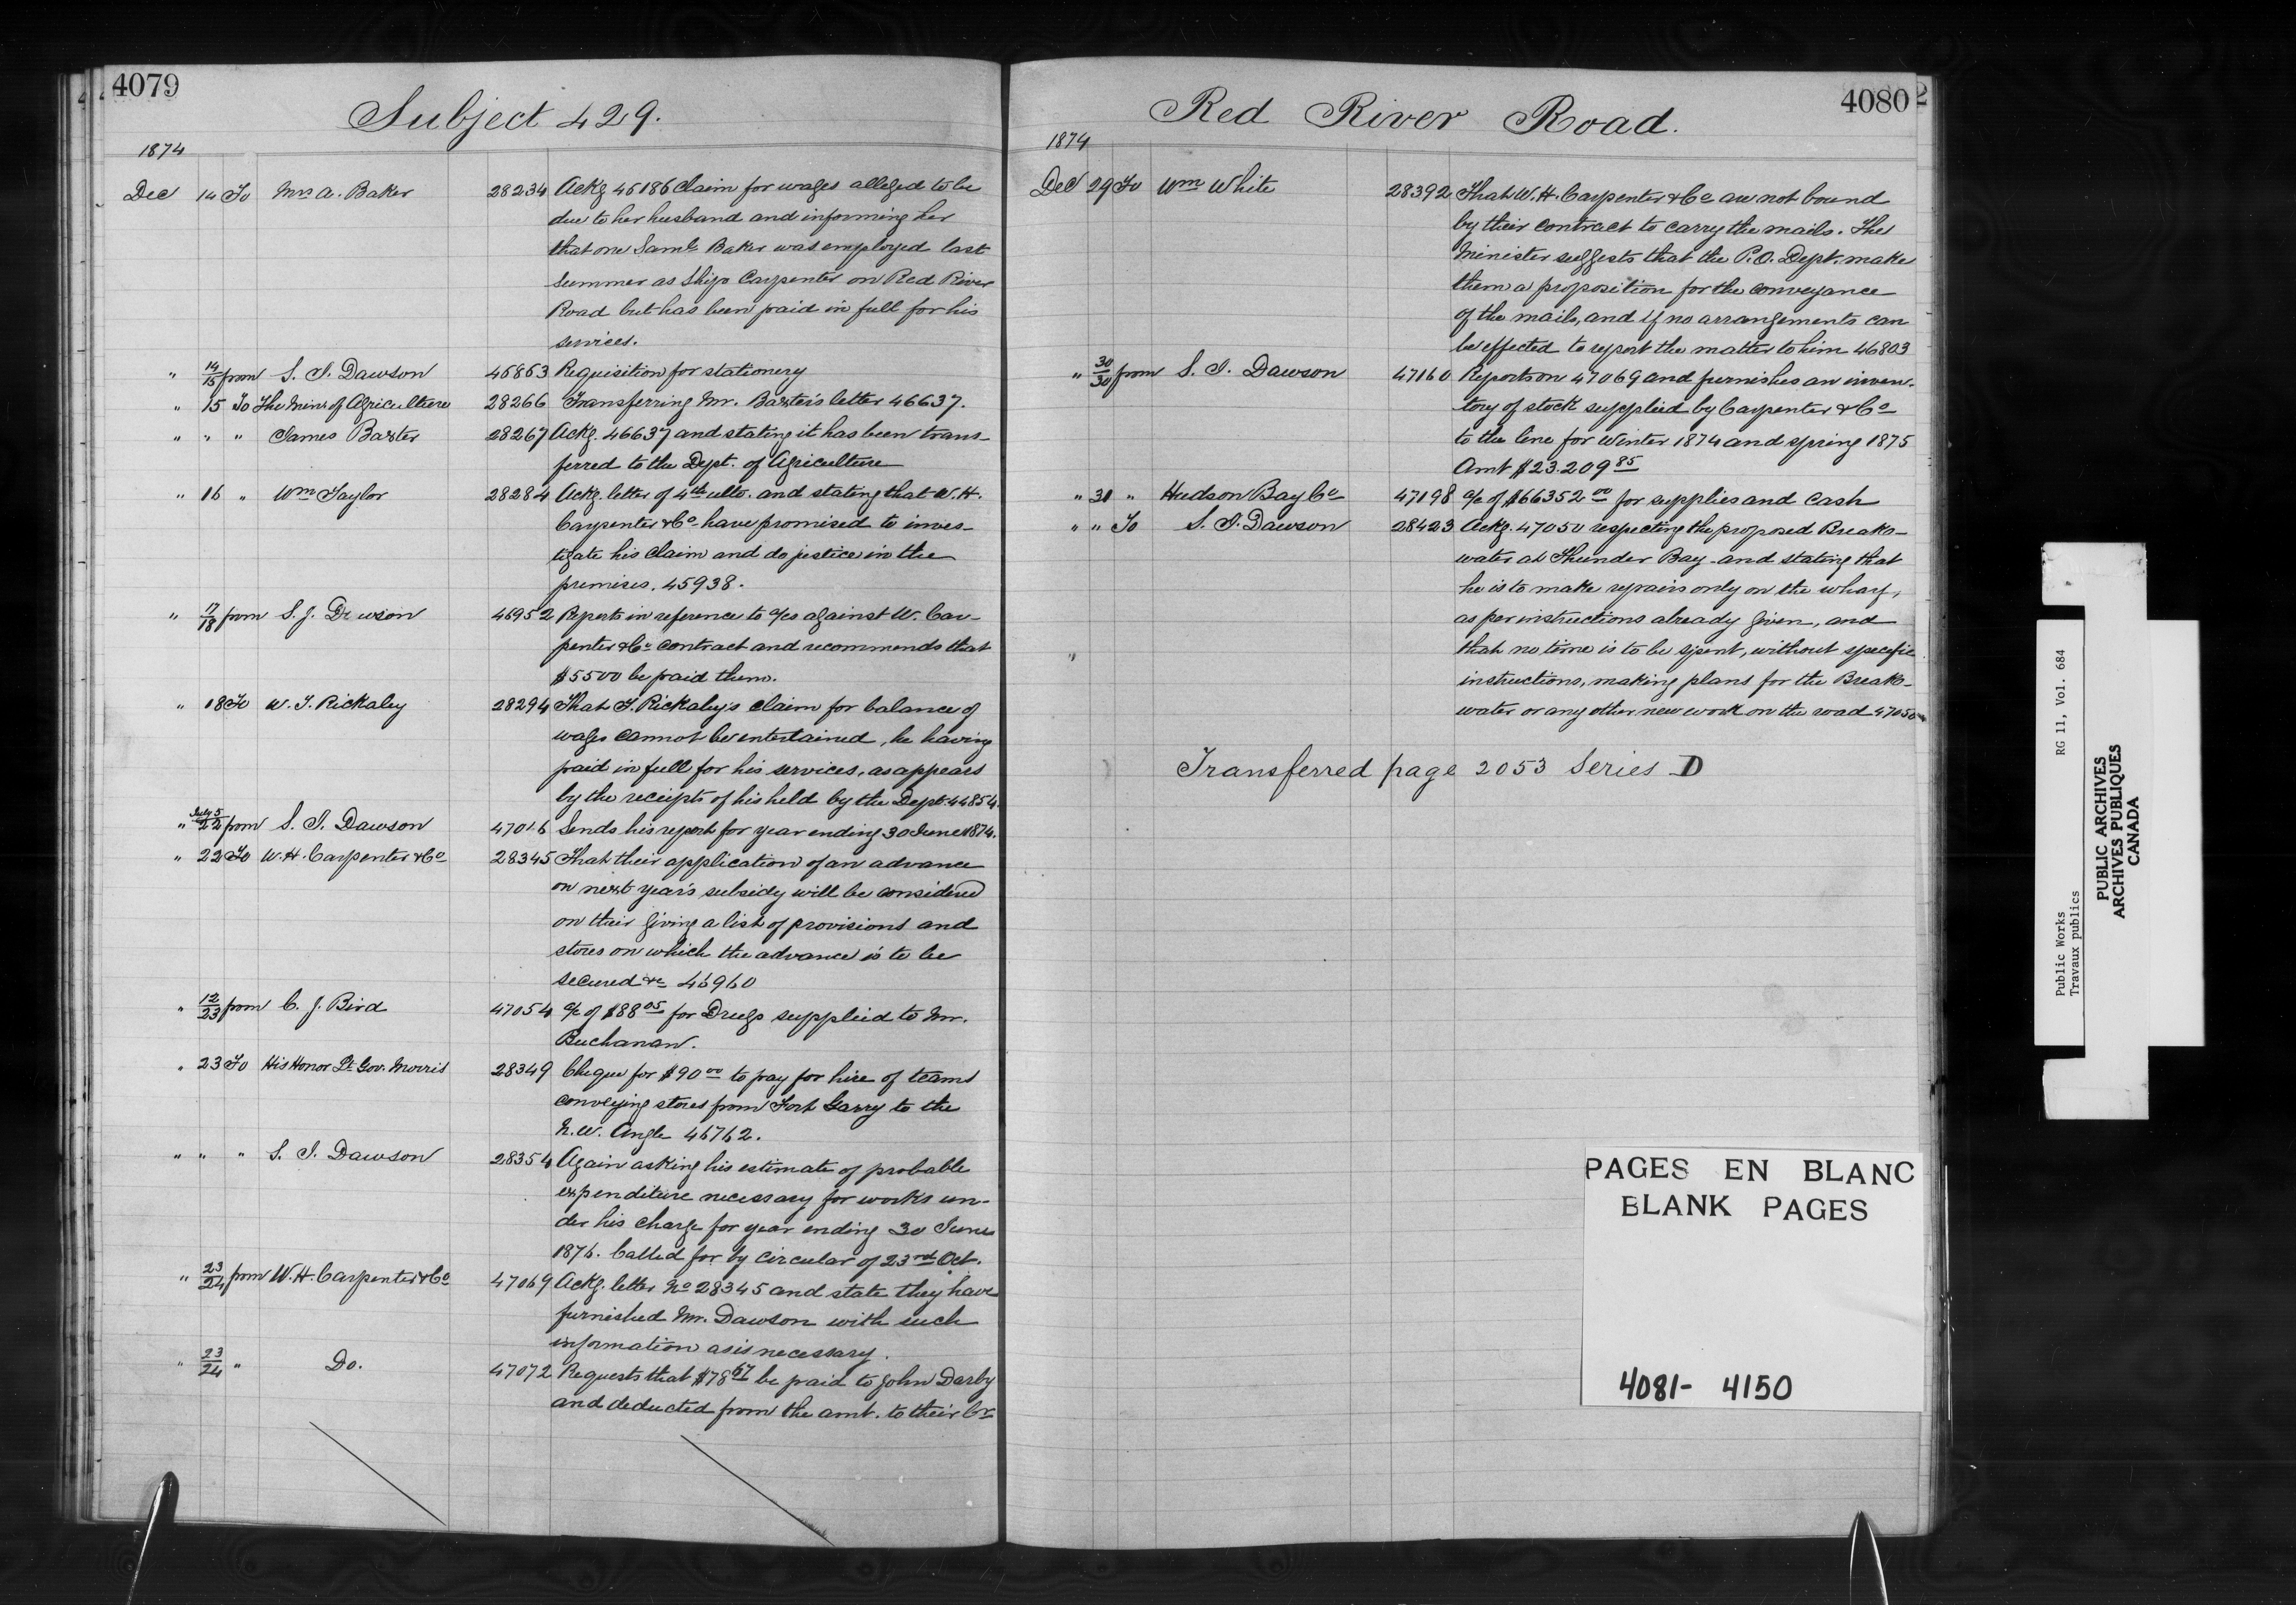 4079
Subject 429.
1874
Dec 14 To Mrs A. Baker 28234 Ackg 46186 Claim for wages alleged to be
due to her husband and informing her
that one Saml. Baker was employed last
summer as Ship Carpenter on Red River
Road but has been paid in full for his
services.
" 14/15 from S. J. Dawson 46863 Requisition for stationery
" 15 To The Minr of Agriculture 28266 Transferring Mr. Baxter's letter 46637.
" " " James Baxter 28267 Ackg. 46637 and stating it has been trans-
ferred to the Dept. of Agriculture
" 16 " Wm Taylor 28284 Ackg. letter of 4th ulto. and stating that W. H.
Carpenter & Co. have promised to inves-
tigate his claim and do justice in the
premises. 45938.
" 17/18 from S. J. Dawson 46952 Reports in reference to a/cs against W. Car-
penter & Co. contract and recommends that
$5500 be paid them.
" 18 To W. J. Rickaley 28294 That J. Rickaley's claim for balance of
wages cannot be entertained, he having
paid in full for his services, as appears
by the receipts of his held by the Dept. 44854.
" July 5/22 from S. J. Dawson 47016 Sends his report for year ending 30 June 1874.
" 22 To W. H. Carpenter & Co 28345 That their application of an advance
on next year's subsidy will be considered
on their giving a list of provisions and
stores on which the advance is to be
secured &c 46960
" 12/23 from C. J. Bird 47054 a/c of $88 05 for Drugs supplied to Mr.
Buchanan.
" 23 To His Honor Lt. Gov. Morris 28349 Cheque for $90 00 to pay for hire of teams
conveying stores from Fort Garry to the
N.W. Angle 46762.
" " " S. J. Dawson 28354 Again asking his estimate of probable
expenditure necessary for works un-
der his charge for year ending 30 June
1876. Called for by circular of 23rd Oct.
" 23/24 from W. H. Carpenter & Co 47069 Ackg. letter No 28345 and state they have
furnished Mr. Dawson with such
information as is necessary.
" 23/24 " Do. 47072 Requests that $78 67 be paid to John Darby
and deducted from the amt. to their Cr
4080
Red River Road.
1874
Dec 29 To Wm White 28392 That W. H. Carpenter & Co are not bound
by their contract to carry the mails. The
Minister suggests that the P.O. Dept. make
them a proposition for the conveyance
of the mails, and if no arrangements can
be effected to report the matter to him 46803
" 30/30 from S. J. Dawson 47160 Reports on 47069 and furnishes an inven-
tory of stock supplied by Carpenter & Co
to the line for winter 1874 and spring 1875
Amt $23.209 85
" 31 " Hudson Bay Co 47198 a/c of $66352 00 for supplies and cash
" " To S. J. Dawson 28423 Ackg. 47050 respecting the proposed Break-
water at Thunder Bay and stating that
he is to make repairs only on the wharf,
as per instructions already given, and
" that no time is to be spent, without specific
instructions, making plans for the Break-
water or any other new work on the road 47050
Transferred page 2053 Series D
Public Works RG 11, Vol. 684
Travaux publics
PUBLIC ARCHIVES
ARCHIVES PUBLIQUES
CANADA
PAGES EN BLANC
BLANK PAGES
4081- 4150